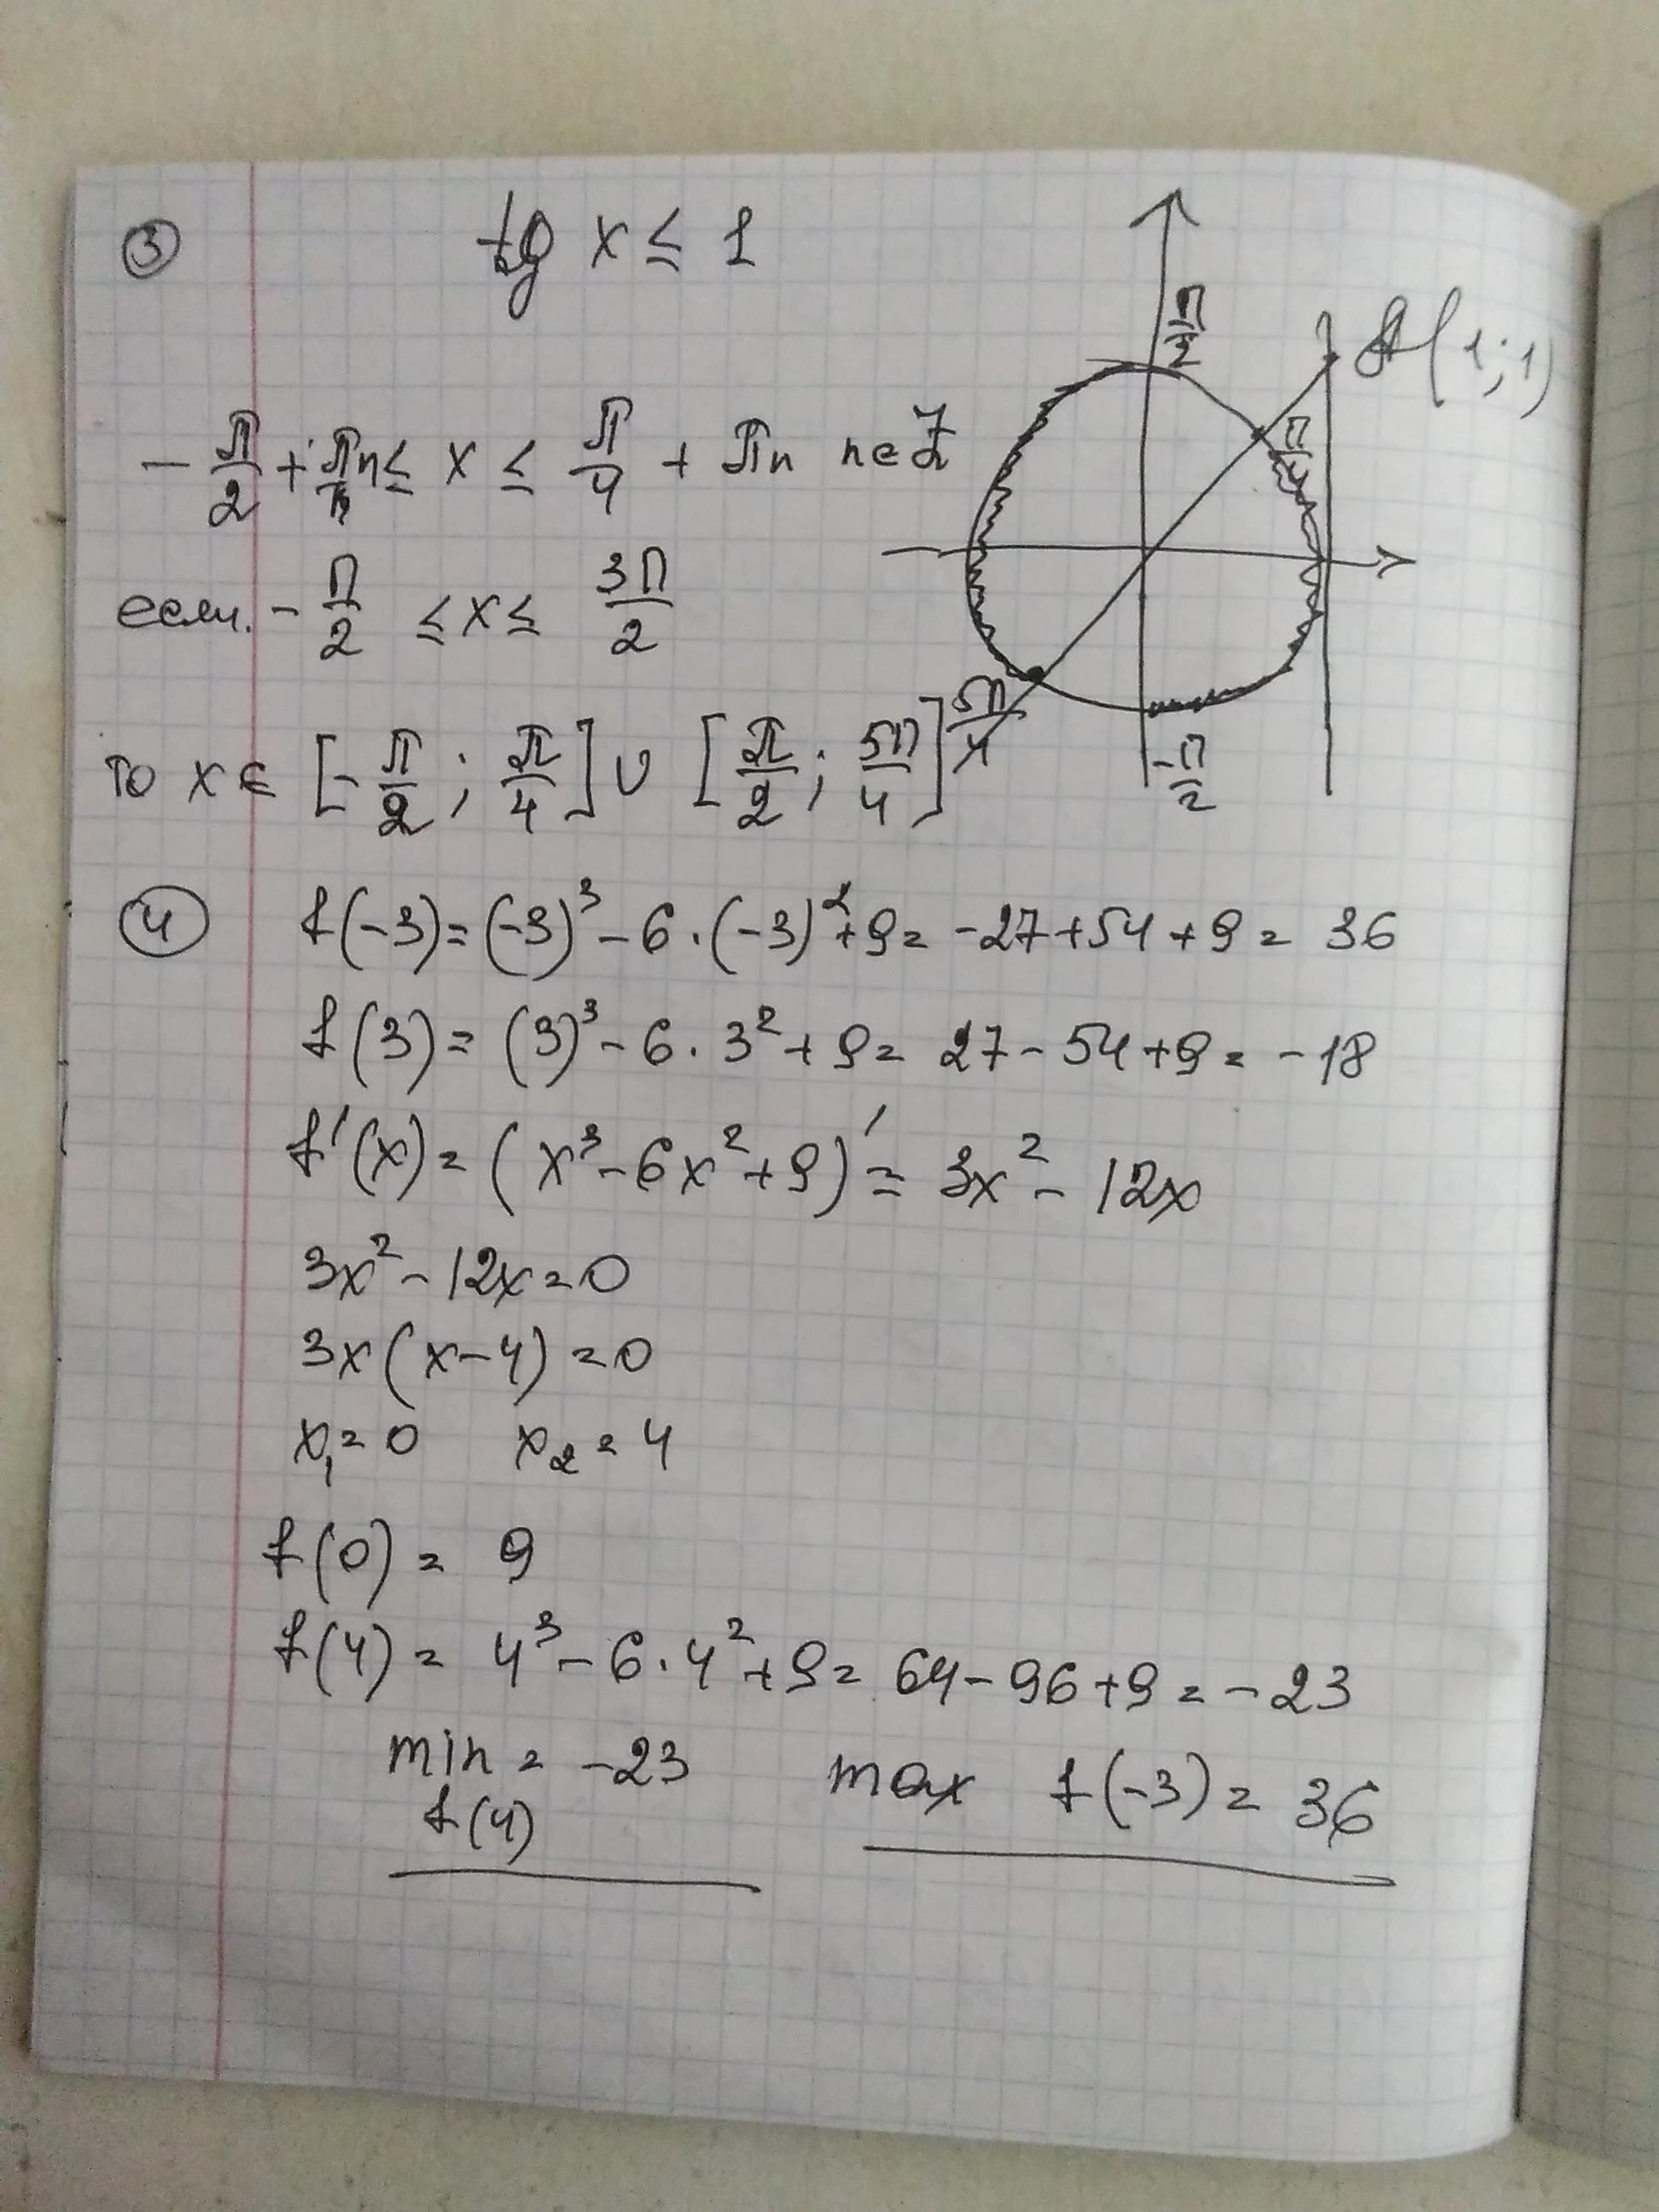 ③ tg x ≤ 1
π/2
A(1;1)
π/4
-π/2 + πn ≤ x ≤ π/4 + πn n∈Z
если -π/2 ≤ x ≤ 3π/2
5π/4
-π/2
то x ∈ [-π/2; π/4] ∪ [π/2; 5π/4]
④ f(-3) = (-3)³ - 6·(-3)² + 9 = -27 + 54 + 9 = 36
f(3) = (3)³ - 6·3² + 9 = 27 - 54 + 9 = -18
f'(x) = (x³ - 6x² + 9)' = 3x² - 12x
3x² - 12x = 0
3x(x - 4) = 0
x₁ = 0 x₂ = 4
f(0) = 9
f(4) = 4³ - 6·4² + 9 = 64 - 96 + 9 = -23
min = -23 max f(-3) = 36
f(4)